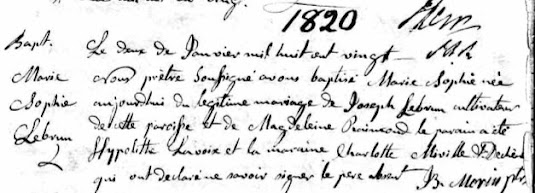 1820
Bapt. Le deux de Janvier mil huit cent vingt
Marie Nous prêtre Soussigné avons baptisé Marie Sophie née
Sophie aujourdhui du legitime mariage de Joseph Lebrun cultivateur
Lebrun de cette paroisse et de Magdeleine Raimond le parain a été
Hypolitte Lavoix et la maraine Charlotte Miville
qui ont declaré ne savoir signer le pere absent J B. Morin ptr